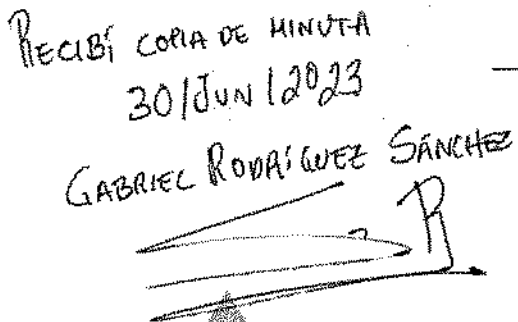 RECIBÍ COPIA DE MINUTA
30/JUN/2023
GABRIEL RODRÍGUEZ SÁNCHEZ